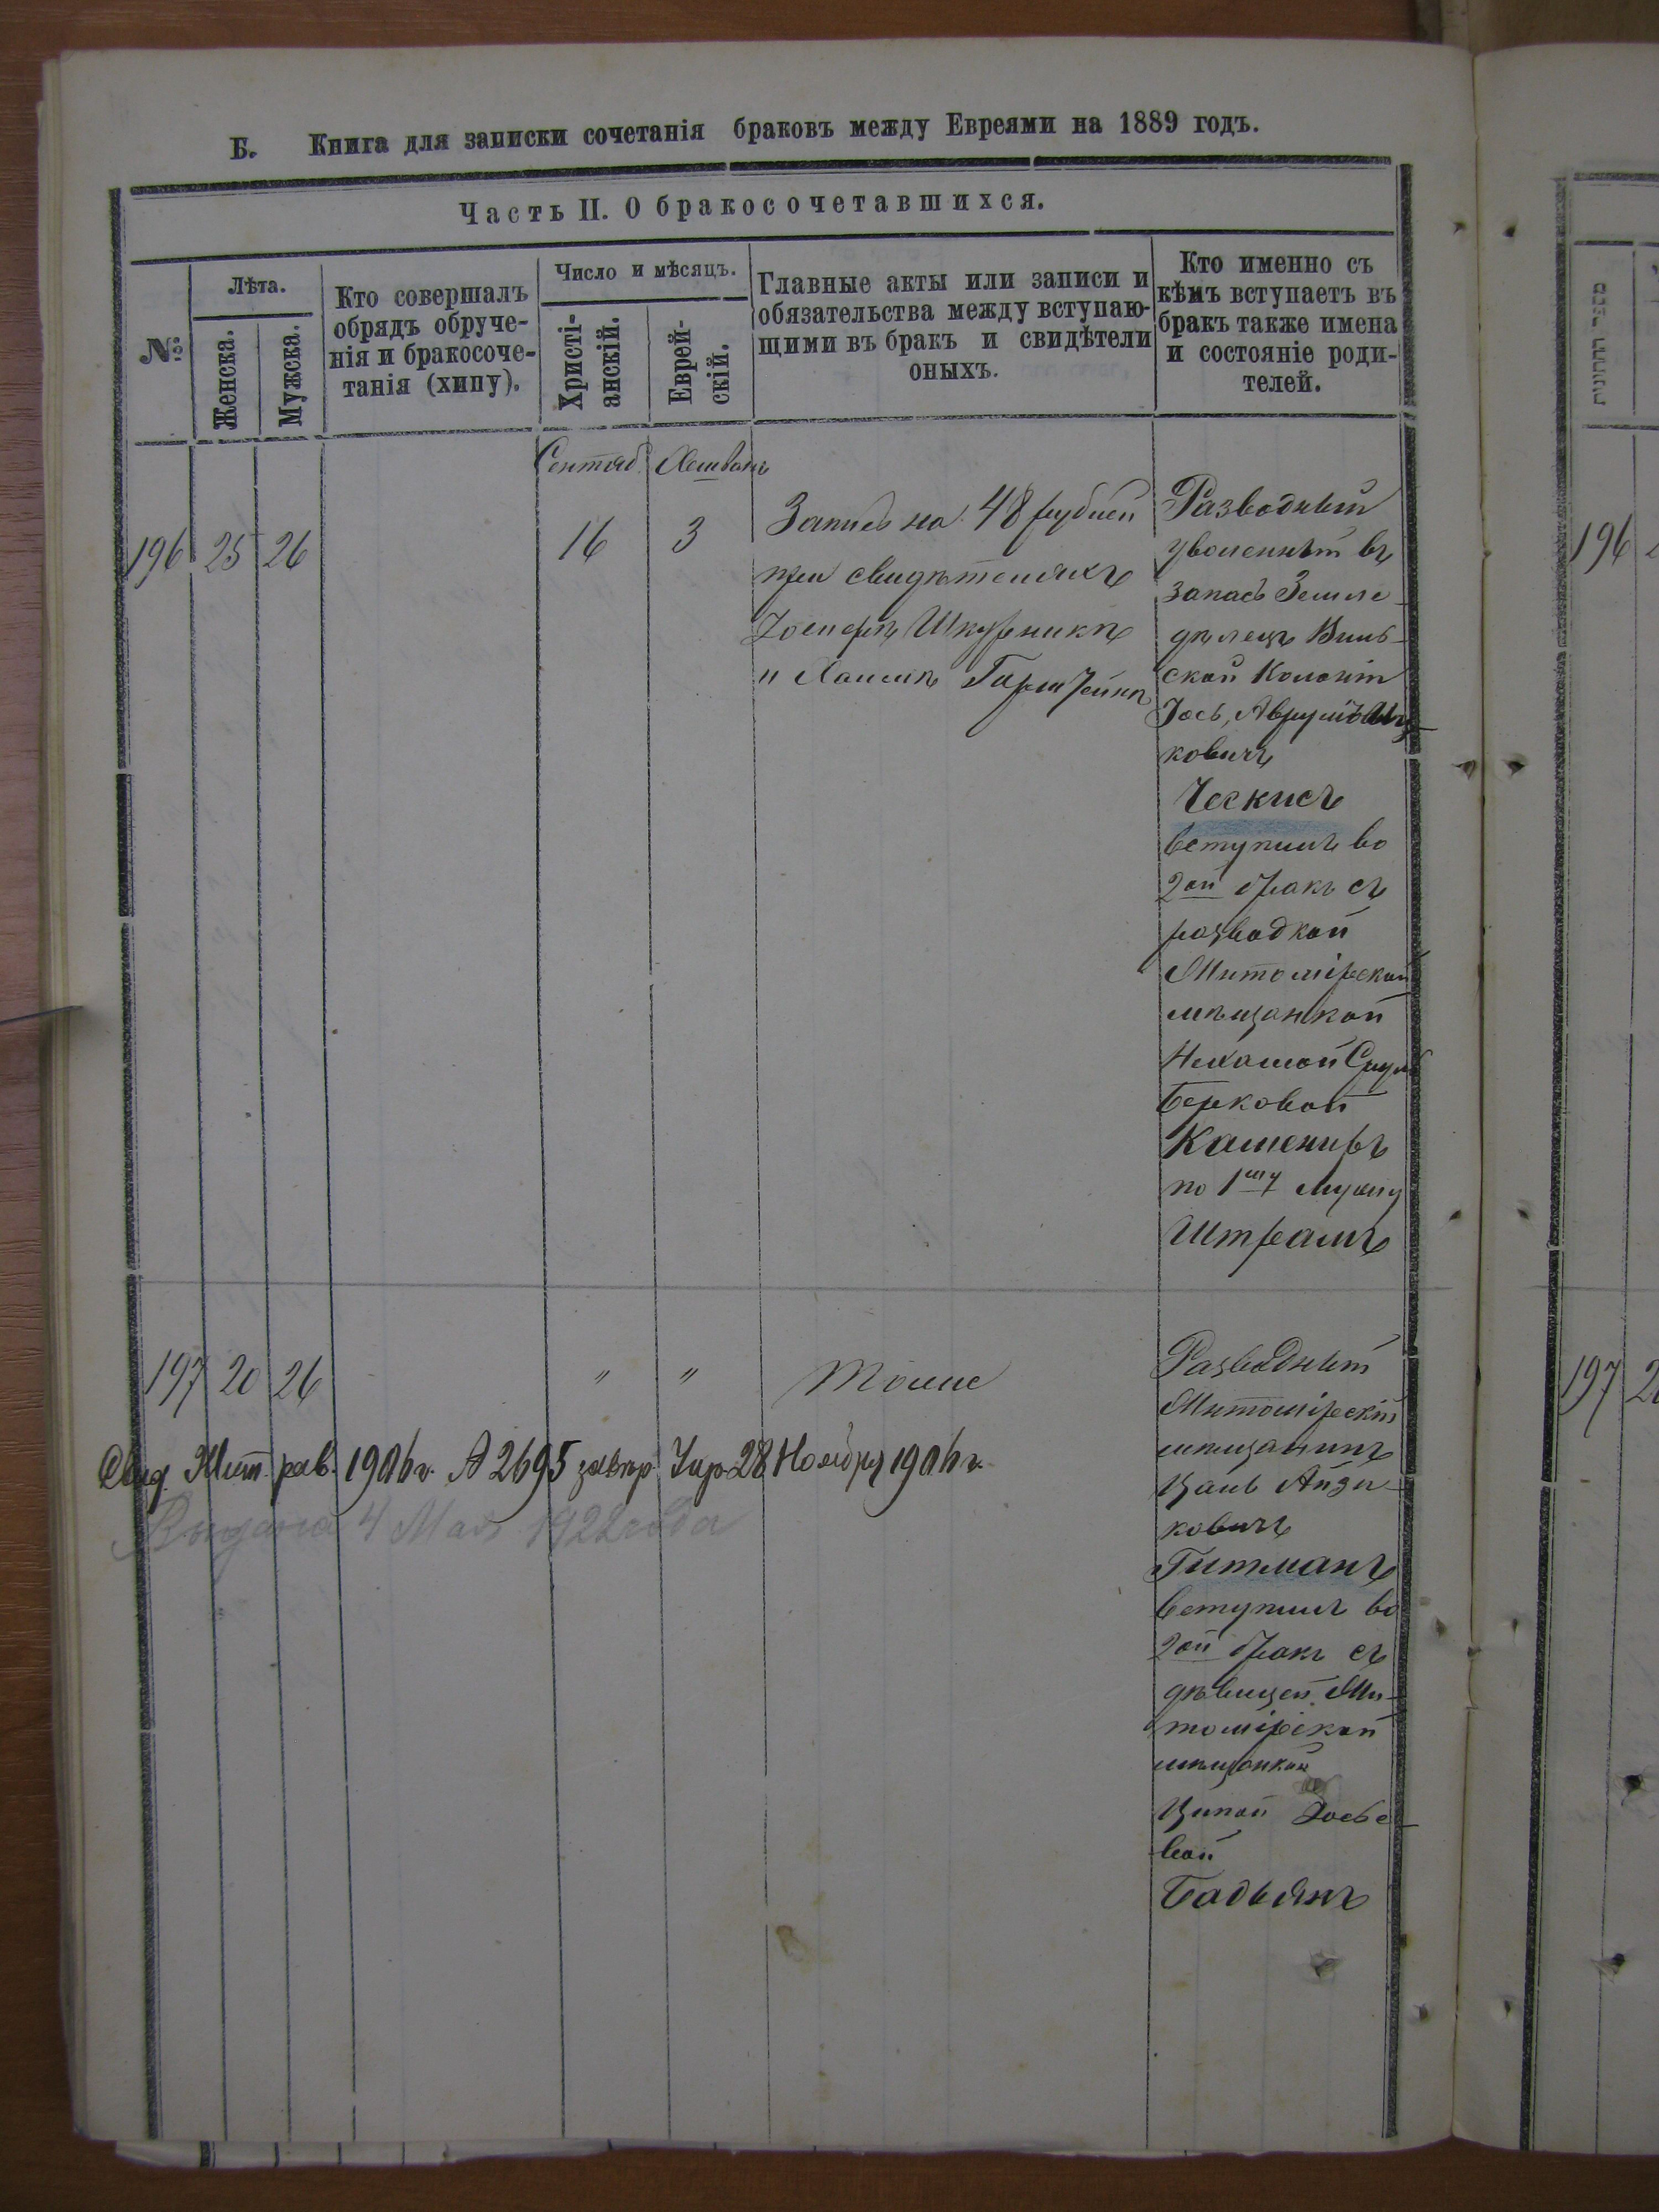 Б. Книга для записки сочетанія браковъ между Евреями на 1889 годъ.
Часть II. О бракосочетавшихся.
№
Лѣта.
Женска.
Мужска.
Кто совершалъ
обрядъ обруче-
нія и бракосоче-
танія (хипу).
Число и мѣсяцъ.
Христі-
анскій.
Еврей-
скій.
Главные акты или записи и
обязательства между вступаю-
щими въ бракъ и свидѣтели
оныхъ.
Кто именно съ
кѣмъ вступаетъ въ
бракъ также имена
и состояніе роди-
телей.
Сентяб. Хешванъ
196 25 26 16 3
Запись на 48 рублей
при свидѣтеляхъ
Іосифѣ Шкурникѣ
и Хаимѣ
Разводный
уволенный въ
запасъ Земле-
дѣлецъ
ской Колоніи
Іось, Аврумъ Иц-
ковичъ
Ческисъ
вступилъ во
2ой бракъ съ
разводкой
Житомірской
мѣщанкой
Нехамой
Берковой
по 1му мужу
197 20 26 " " Тоже
Разводный
Житомірскій
мѣщанинъ
Цаль Айзи-
ковичъ
Гитманъ
вступилъ во
2ой бракъ съ
дѣвицей Жи-
томірской
мѣщанкой
Ципой Іосье-
вой
Бадьянъ
Свид. Жит. рав. 1906 г. № 2695 28 Ноября 1906 г.
Выдана 4 Мая 1922 года
196
197